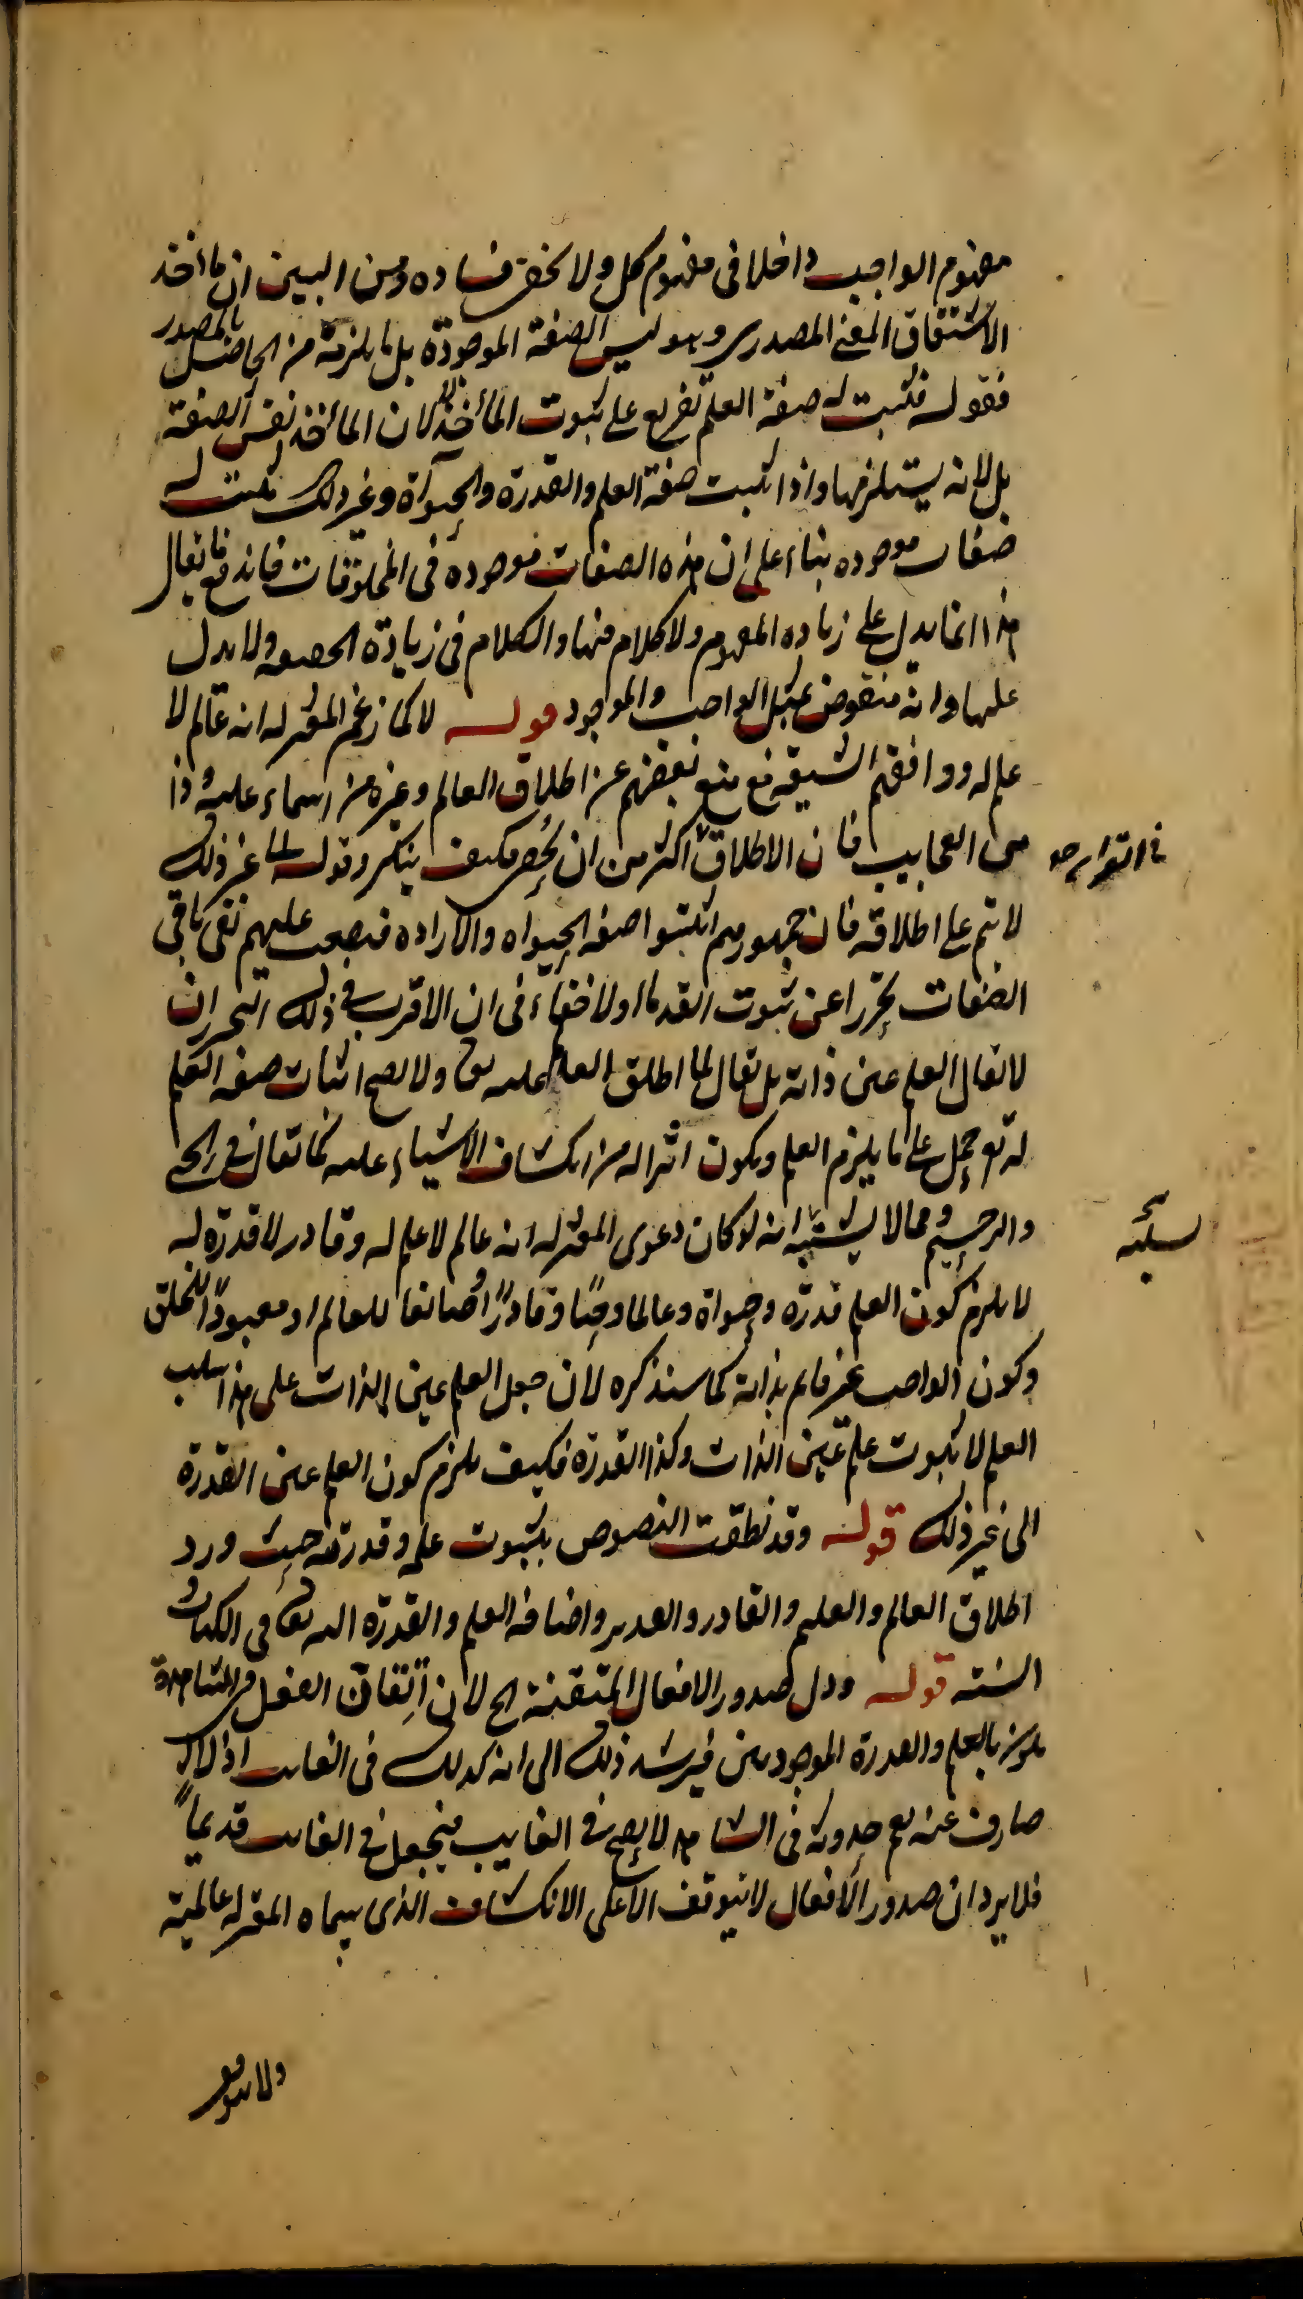 مفهوم الواجب داخلا فى مفهوم كل ولا يخفى فساده ومن البين ان مأخذ
الاشتقاق المعنى المصدرى وهو ليس الصفة الموجودة بل ما يلزمه من الحاصل بالمصدر
فقوله فثبت له صفة العلم تفريع على ثبوت المأخذ لا لان المأخذ نفس الصفة
بل لانه يستلزمها واذا ثبت صفة العلم والقدرة والحيوة وغير ذلك ثبت له
صفات موجوده بناء على ان هذه الصفات موجوده فى المخلوقات فاندفع ما يقال
هذا انما يدل على زياده المفهوم ولا كلام فيها والكلام فى زيادة الحقيقه ولا يدل
عليها وانه منقوض بمثل الواجب والموجود قوله لا كما زعم المعتزله انه عالم لا
علم له ووافقهم الشيعة مع منع بعضهم عن اطلاق العالم وغيره من اسماءه عليه وذا
من العجايب فان الاطلاق اكثر من ان يحصى فكيف ينكر وقوله الى غير ذلك
فى التواريخ
لا يتم على اطلاقه فان جمهورهم اثبتوا صفه الحيواه والاراده فيصعب عليهم نفى باقى
الصفات تحرزا عن ثبوت القدماء ولا خفاء فى ان الاقرب فى ذلك التحرز ان
لا يقال العلم عين ذاته بل يقال لما اطلق العالم عليه تعالى ولا يصح اثبات صفه العلم
له تعالى حمل على ما يلزم العلم ويكون اثرا له من انكشاف الاشياء عليه كما يقال فى الحى
والرحيم ومما لا يشتبه انه لو كان دعوى المعتزله انه عالم لا علم له وقادر لا قدرة له
لا يلزم كون العلم قدره وحيواة وعالما وحيا وقادرا وصانعا للعالم او معبودا للخلق
وكون الواجب غير قائم بذاته كما سنذكره لان جعل العلم عين الذات على هذا سلب
العلم لا ثبوت علم عين الذات وكذا القدرة فكيف يلزم كون العلم عين القدرة
الى غير ذلك قوله وقد نطقت النصوص بثبوت علمه وقدرته حيث ورد
اطلاق العالم والعليم والقادر والقدير واضافه العلم والقدره اليه تعالى فى الكتاب و
السنه قوله ودل صدور الافعال المتقنة الخ لان اتقان الفعل فى المشاهدة
يلزمه بالعلم والقدرة الموجودين فيرشد ذلك الى انه كذلك فى الغائب اذ لا
صارف عنه نعم حدوثه فى الشاهد لا يصح فى الغايب فيجعل فى الغائب قديماً
فلا يرد ان صدور الافعال لا يتوقف الا على الانكشاف الذى سماه المعتزله عالمية
ولا يتوقف